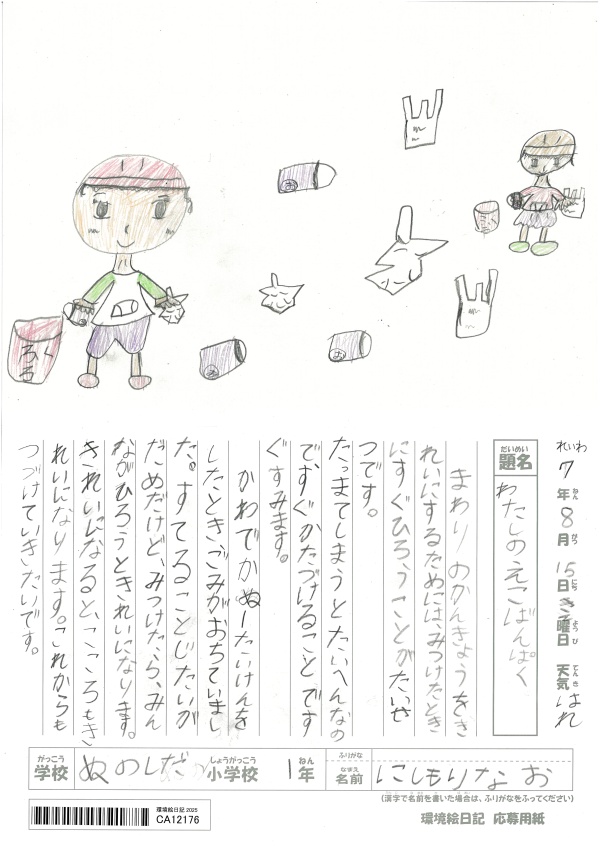 れいわ7年8月15日きん曜日 天気はれ
題名
だいめい
わたしのえこばんぱく
まわりのかんきょうをき
れいにするためには、みつけたとき
にすぐひろうことがたいせ
つです。
たっまてしまうとたいへんなの
ですぐかたづけることです
ぐすみます。
かわでかぬーたいけんを
したとき、ごみがおちていまし
た。すてることじたいが
だめだけど、みつけたら、みん
ながひろうときれいになります。
きれいになると、こころもき
れいになります。これからも
つづけていきたいです。
がっこう
学校
ぬのしだ
しょうがっこう
小学校
1年
ねん
ふりがな
なまえ
名前
にしもりなお
(漢字で名前を書いた場合は、ふりがなをふってください)
環境絵日記 応募用紙
環境絵日記 2025
CA12176